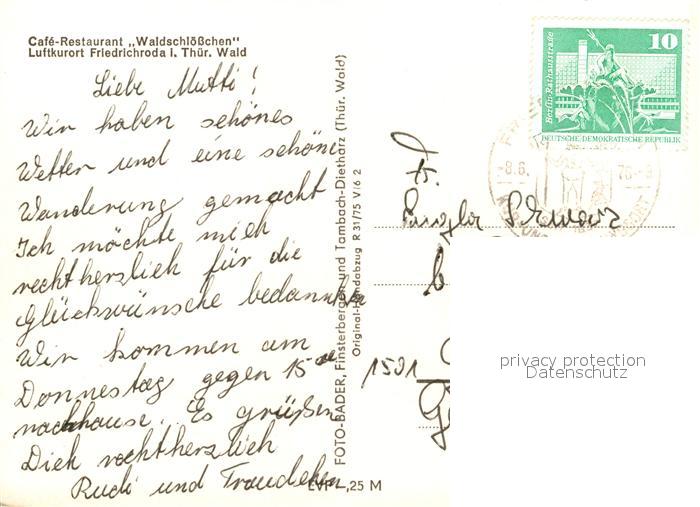 Café-Restaurant „Waldschlößchen"
Luftkurort Friedrichroda i. Thür. Wald
Liebe Mutti!
Wir haben schönes
Wetter und eine schöne
Wanderung gemacht
Ich möchte mich
rechtherzlich für die
Glückwünsche bedanken
Wir kommen am
Donnestag gegen 15
nachhause. Es grüßen
Dich rechtherzlich
Rudi und Traudchen
EVP -,25 M
FOTO-BADER, Finsterbergen und Tambach-Dietharz (Thür. Wald)
Original-Handabzug R 31/75 V/6 2
Berlin-Rathausstraße
10
DEUTSCHE DEMOKRATISCHE REPUBLIK
-8.6.
Fr.
Schwarz
1501
privacy protection
Datenschutz